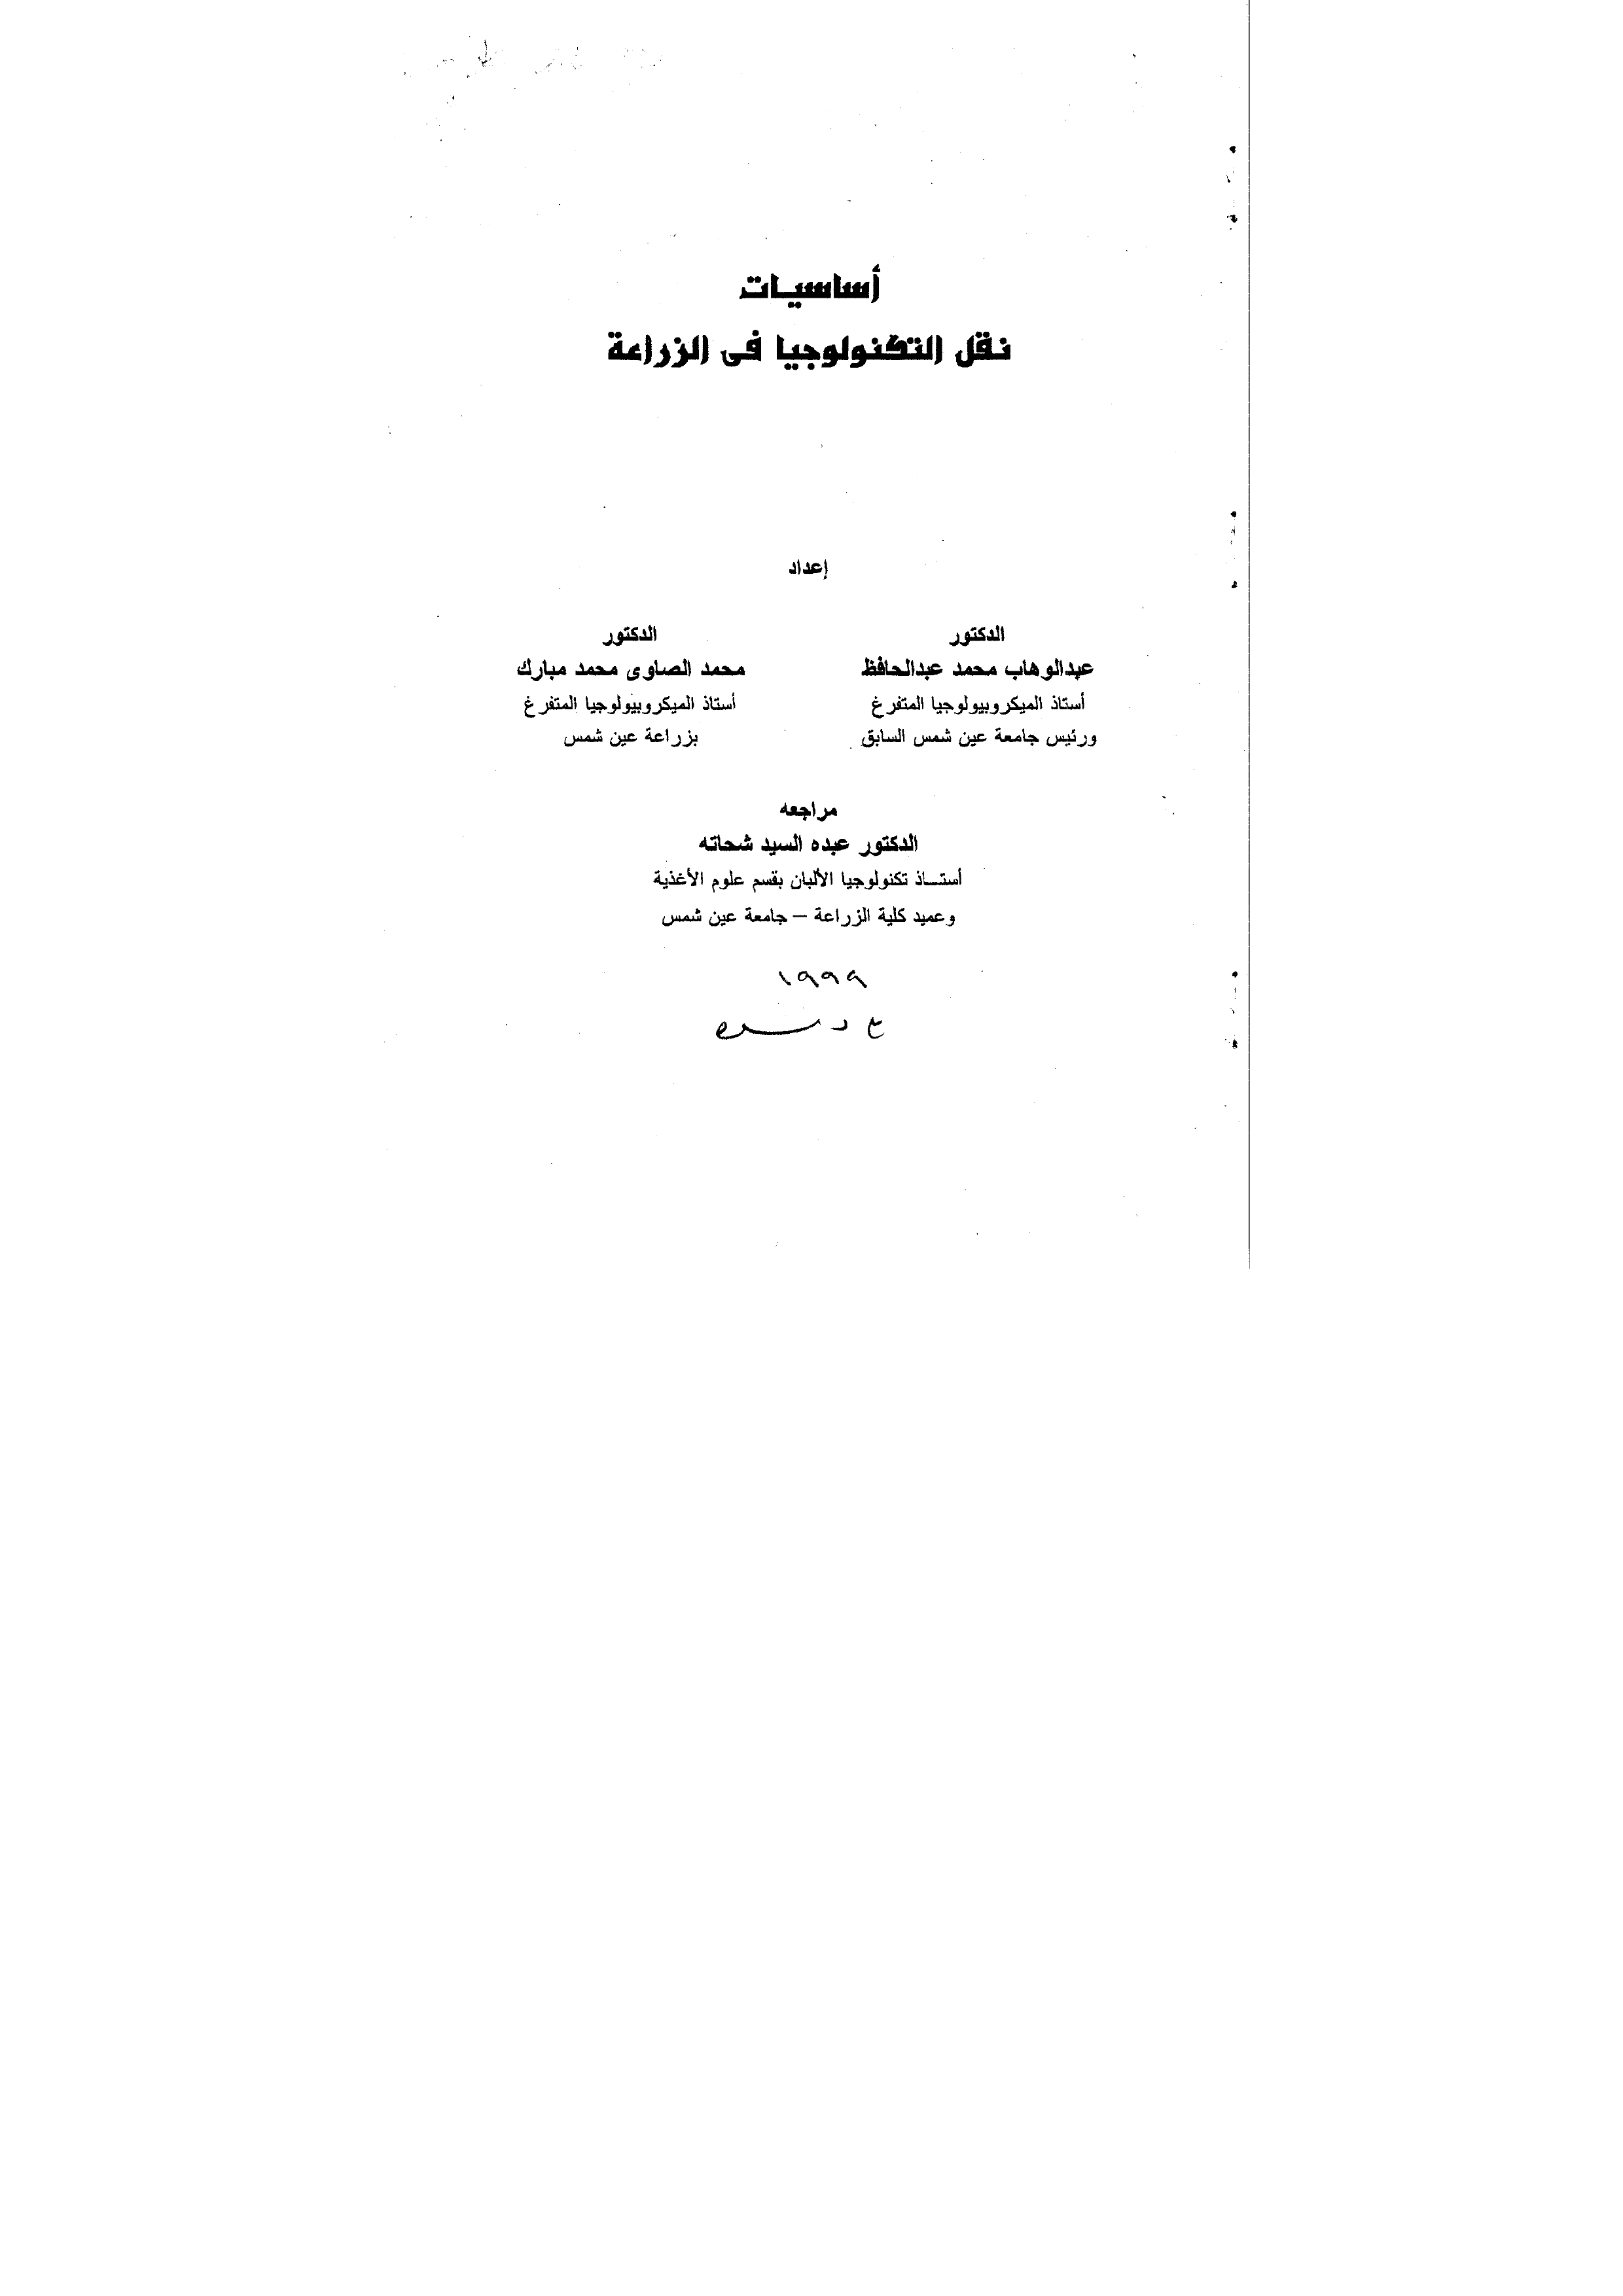 أساسيات
نقل التكنولوجيا فى الزراعة
إعداد
الدكتور
عبدالوهاب محمد عبدالحافظ
أستاذ الميكروبيولوجيا المتفرغ
ورئيس جامعة عين شمس السابق
الدكتور
محمد الصاوى محمد مبارك
أستاذ الميكروبيولوجيا المتفرغ
بزراعة عين شمس
مراجعه
الدكتور عبده السيد شحاته
أستـــاذ تكنولوجيا الألبان بقسم علوم الأغذية
وعميد كلية الزراعة – جامعة عين شمس
١٩٩٩